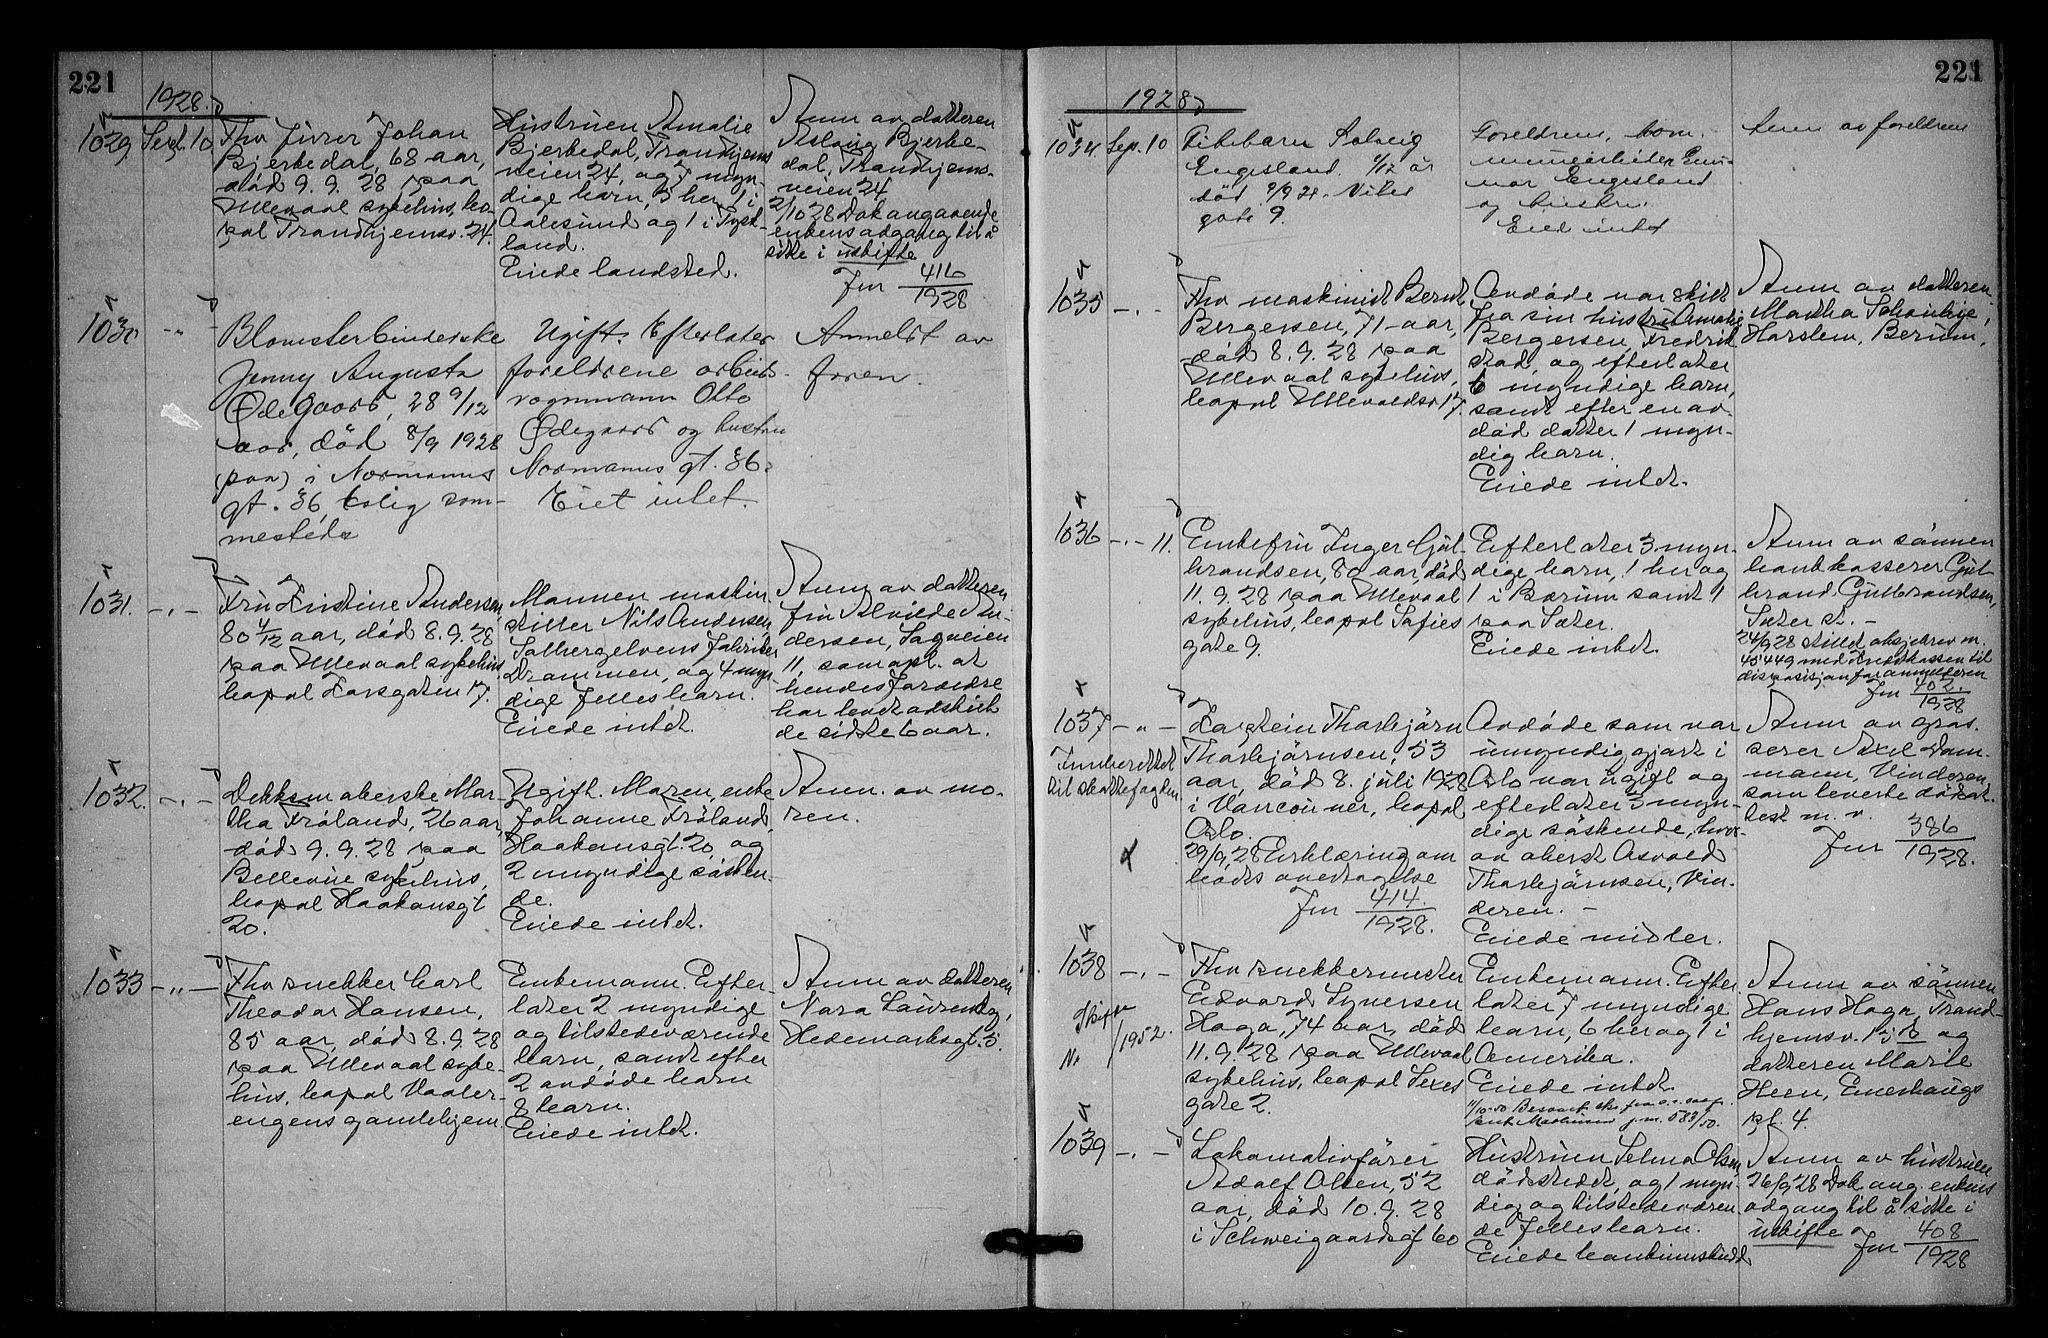 221
1928.
1029 Sept. 10 Fhv fiirer Johan
Bjerkedal, 68 aar,
död 9. 9. 28 paa
Ullevaal sykehus, bo-
pal Trondhjemsv. 24.
Hustruen Amalie
Bjerkedal, Trondhjems
veien 24, og 7 myn-
dige barn, 5 her, 1 i
Aalesund og 1 i Tysk-
land.
Eiede landsted.
Anm av datteren
Aslaug Bjerke-
dal, Trondhjems-
veien 24
2/10 28 Dok angaaende
enkens adgang til å
sitte i uskifte
Jnr 416
1928
1030 - " - Blomsterbinderske
Jenny Augusta
Ødegaard, 28 9/12
aar, död 8/9 1928
(paa) i Normanns
gt. 36, bolig sam-
mesteds
Ugift. Efterlater
foreldrene arbeids-
vognmann Otto
Ødegaard og hustru
Normanns gt. 36.
Eiet intet.
Anmeldt av
faren.
1031. - " - Fru Kristine Andersen,
80 4/12 aar, död 8. 9. 28
paa Ullevaal sykehus,
bopal Korsgaten 17.
Mannen maskin
stiller Nils Andersen,
Solbergelvens Fabriker
Drammen, og 4 myn
dige felles barn.
Eiede intet.
Anm av datteren
fru Alvilde An-
dersen, Sagveien
11, som opl. at
hendes foreldre
har levet adskilt
de sidste 6 aar.
1032. - " - Dekksmakerske Mar-
tha Fröland, 26 aar,
död 9. 9. 28 paa
Bellevue sykehus,
bopal Haakonsgt
20.
Ugift. Moren, enke
Johanne Fröland,
Haakonsgt. 20, og
2 umyndige sösken-
de.
Eiede intet.
Anm. av mo-
ren.
1033 - " - Fhv snekker Carl
Theodor Hansen,
85 aar, död 8. 9. 28
paa Ullevaal syke-
hus, bopal Vaaler-
engens gamlehjem
Enkemann. Efter-
later 2 myndige
og tilstedeværende
barn, samt efter
2 avdöde barn
8 barn.
Eiede intet.
Anm av datteren
Nora Laurendz,
Hedemarksgt. 5.
221
1928
1034. Sep. 10 Pikebarn Solveig
Engesland 1/12 år
död 9/9 28. Nikes
gate 9.
Foreldrene, kom-
munearbeider Gun-
nar Engesland
og hustru.
Eied intet
Anm av foreldrene
1035 - " - Fhv maskinist Bernt
Bergersen, 71 aar,
död 8. 9. 28 paa
Ullevaal sykehus,
bopal Ullevoldsv 17.
Avdöde var skilt
fra sin hustru Amalie
Bergersen, Fredrik
stad, og efterlater
6 myndige barn,
samt efter en av
död datter 1 myn-
dig barn.
Eiede intet.
Anm av datteren
Martha Schönheje,
Harslem, Berum.
1036 - " - 11. Enkefru Inger Gul-
brandsen, 80 aar, död
11. 9. 28 paa Ullevaal
sykehus, bopal Sofies
gate 9.
Efterlater 3 myn-
dige barn, 1 her og
1 i Bærum samt 1
paa Sæter.
Eiede intet.
Anm av sönnen
bankkasserer Gul
brand Gulbrandsen,
Sæter st. -
24/9 28 stillet aksjebrev nr.
45449 med Kreditkassen til
disposisjon for anmelderen
Jnr 402
1928
1037 - " - Kaptein Thorbjörn
Thorbjörnsen, 53
aar, död 8. juli 1928
i Vancouver, bopal
Oslo.
Innberettet
til skattefogden
29/9 28 Erklæring om
bodts overtagelse
Jnr 414
1928.
Avdöde som var
umyndiggjort i
Oslo var ugift og
efterlater 3 myn-
dige söskende, hvor-
av oberst Asvald
Thorbjörnsen, Vin-
deren. -
Eiede midler.
Anm av gros-
serer Axel Dam-
mann, Vinderen,
som leverte dödsat-
test m. v.
Jnr 386
1928.
1038 - " - Fhv snekkermester
Edvard Syversen
Haga, 74 aar, död
11. 9. 28 paa Ullevaal
sykehus, bopal Sexes
gate 2.
Skifte
Nr /1952.
Enkemann. Efter
later 7 myndige
barn, 6 her og 1 i
Amerika.
Eiede intet
11/10-50 Besvart skr. fra o.r. sakf.
jnr. 583/50.
Anm av sönnen
Hans Haga, Trond-
hjemsv. 156 og
datteren Marie
Heen, Enerhaugs
pl. 4.
1039 - " - Lokomotivförer
Adolf Olsen, 52
aar, död 10. 9. 28
i Schweigaardsgt 60
Hustruen Selma Olsen
dödstedet, og 1 myn-
dig og tilstedeværen
de felles barn.
Eiede bankinnskudd
Anm av hustruen
26/9 28 Dok ang. enkens
adgang til å sitte i
uskifte
Jnr 408
1928